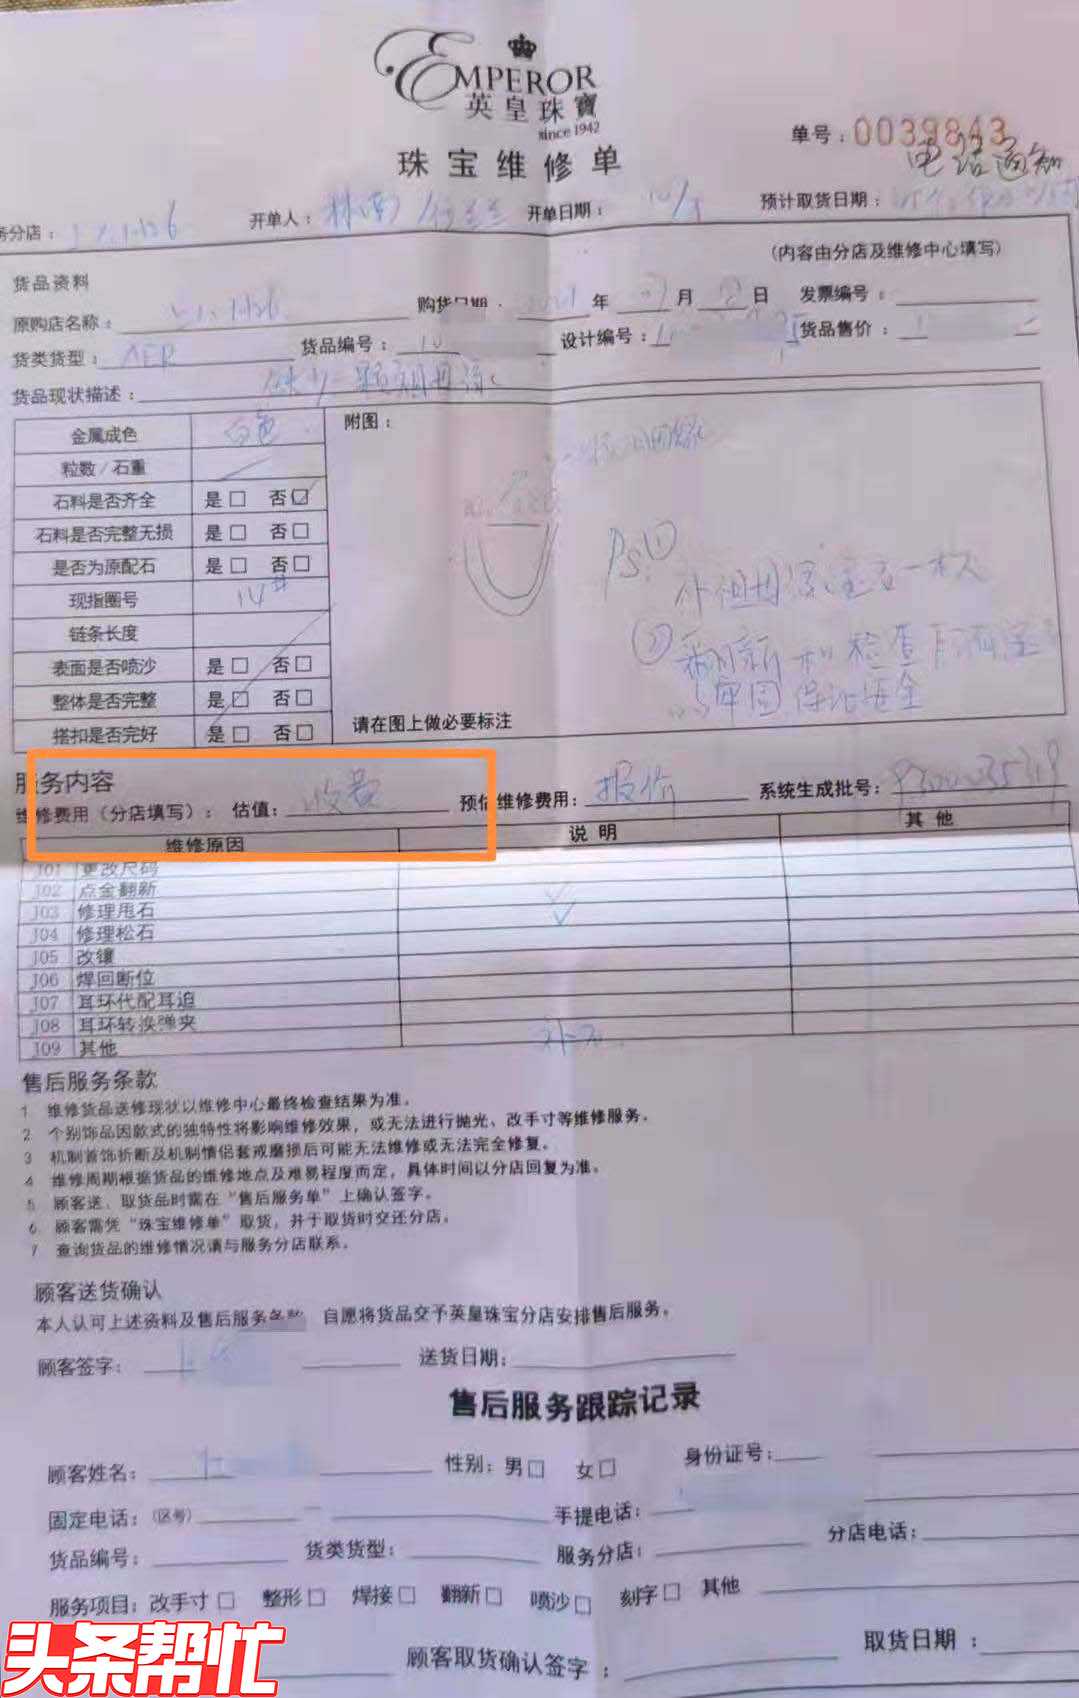 EMPEROR
英皇珠寶
since 1942
珠宝维修单
单号：0039843
电话通知
务分店： 开单人： 开单日期： 预计取货日期：
(内容由分店及维修中心填写)
货品资料
原购店名称： 购货日期： 年 月 日 发票编号：
货类货型： 货品编号： 设计编号： 货品售价：
货品现状描述：
金属成色 白色
粒数/石重
石料是否齐全 是□ 否☑
石料是否完整无损 是□ 否□
是否为原配石 是□ 否□
现指圈号 14#
链条长度
表面是否喷沙 是□ 否□
整体是否完整 是□ 否□
搭扣是否完好 是□ 否□
附图：
PS①
② 翻新 检查
牢固
请在图上做必要标注
服务内容
维修费用（分店填写）： 估值：收费 预估维修费用：报价 系统生成批号：
维修原因 说明 其他
J01 更改尺码
J02 点金翻新
J03 修理甩石
J04 修理松石
J05 改镶
J06 焊回断位
J07 耳环代配耳迫
J08 耳环转换弹夹
J09 其他
售后服务条款
1 维修货品送修现状以维修中心最终检查结果为准。
2 个别饰品因款式的独特性将影响维修效果，或无法进行抛光、改手寸等维修服务。
3 机制首饰折断及机制情侣套戒磨损后可能无法维修或无法完全修复。
4 维修周期根据货品的维修地点及难易程度而定，具体时间以分店回复为准。
5 顾客送、取货品时需在“售后服务单”上确认签字。
6 顾客需凭“珠宝维修单”取货，并于取货时交还分店。
7 查询货品的维修情况请与服务分店联系。
顾客送货确认
本人认可上述资料及售后服务条款 自愿将货品交予英皇珠宝分店安排售后服务。
顾客签字： 送货日期：
售后服务跟踪记录
顾客姓名： 性别：男□ 女□ 身份证号：
固定电话：(区号) 手提电话：
货品编号： 货类货型： 服务分店： 分店电话：
服务项目：改手寸□ 整形□ 焊接□ 翻新□ 喷沙□ 刻字□ 其他
顾客取货确认签字： 取货日期：
头条帮忙